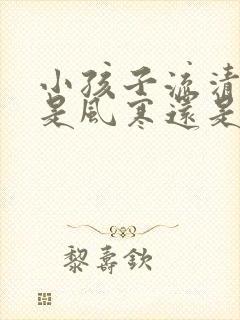 小孩子流清
是風寒還是
黎壽欽